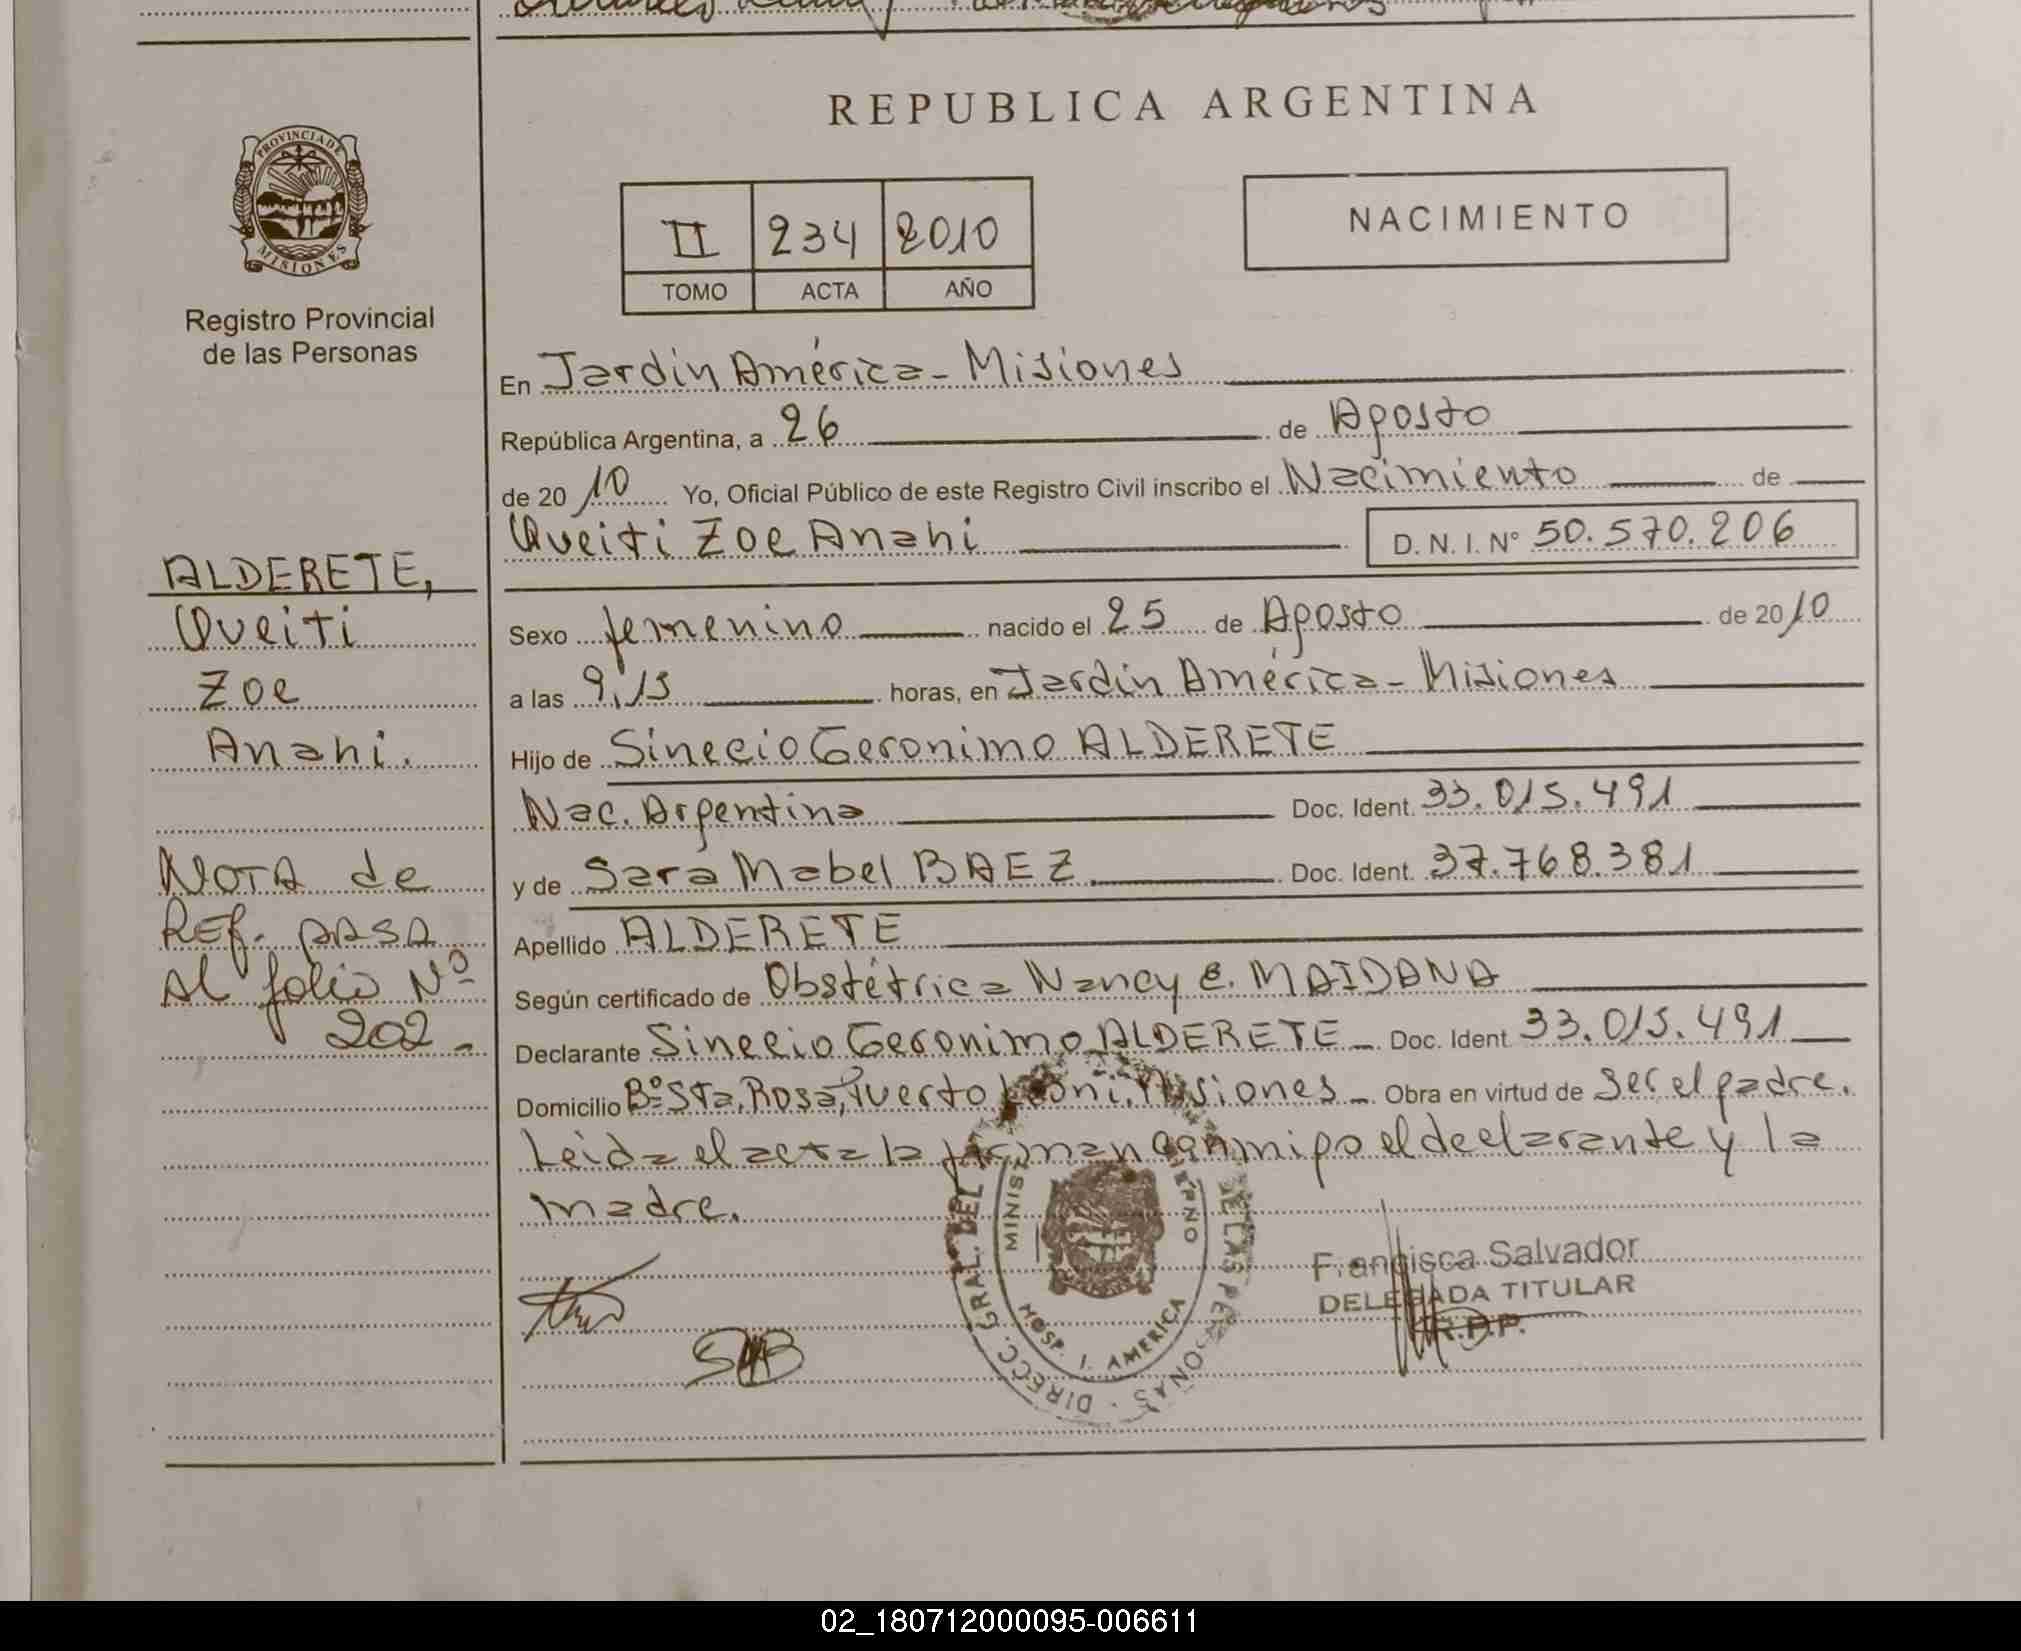 REPUBLICA ARGENTINA
PROVINCIA DE
MISIONES
Registro Provincial
de las Personas
II 234 2010
TOMO ACTA AÑO
NACIMIENTO
En Jardín América - Misiones
República Argentina, a 26 de Agosto
de 2010 Yo, Oficial Público de este Registro Civil inscribo el Nacimiento de
Queiti Zoe Anahi D. N. I. N° 50.570.206
Sexo femenino nacido el 25 de Agosto de 2010
a las 9,15 horas, en Jardín América - Misiones
Hijo de Sinecio Geronimo ALDERETE
Nac. Argentina Doc. Ident. 33.015.491
y de Sara Mabel BAEZ. Doc. Ident. 37.768.381
Apellido ALDERETE
Según certificado de Obstétrica Nancy E. MAIDANA
Declarante Sinecio Geronimo ALDERETE - Doc. Ident 33.015.491
Domicilio B° Sta. Rosa, Puerto Leoni, Misiones - Obra en virtud de ser el padre.
Leida el acta la firman conmigo el declarante y la
madre.
ALDERETE,
Queiti
Zoe
Anahi.
NOTA de
REf. PASA
Al folio N°
202.-
DIRECC. GRAL. DEL DE LAS PERSONAS
HOSP. J. AMERICA
Francisca Salvador
DELEGADA TITULAR
R.P.P.
02_180712000095-006611